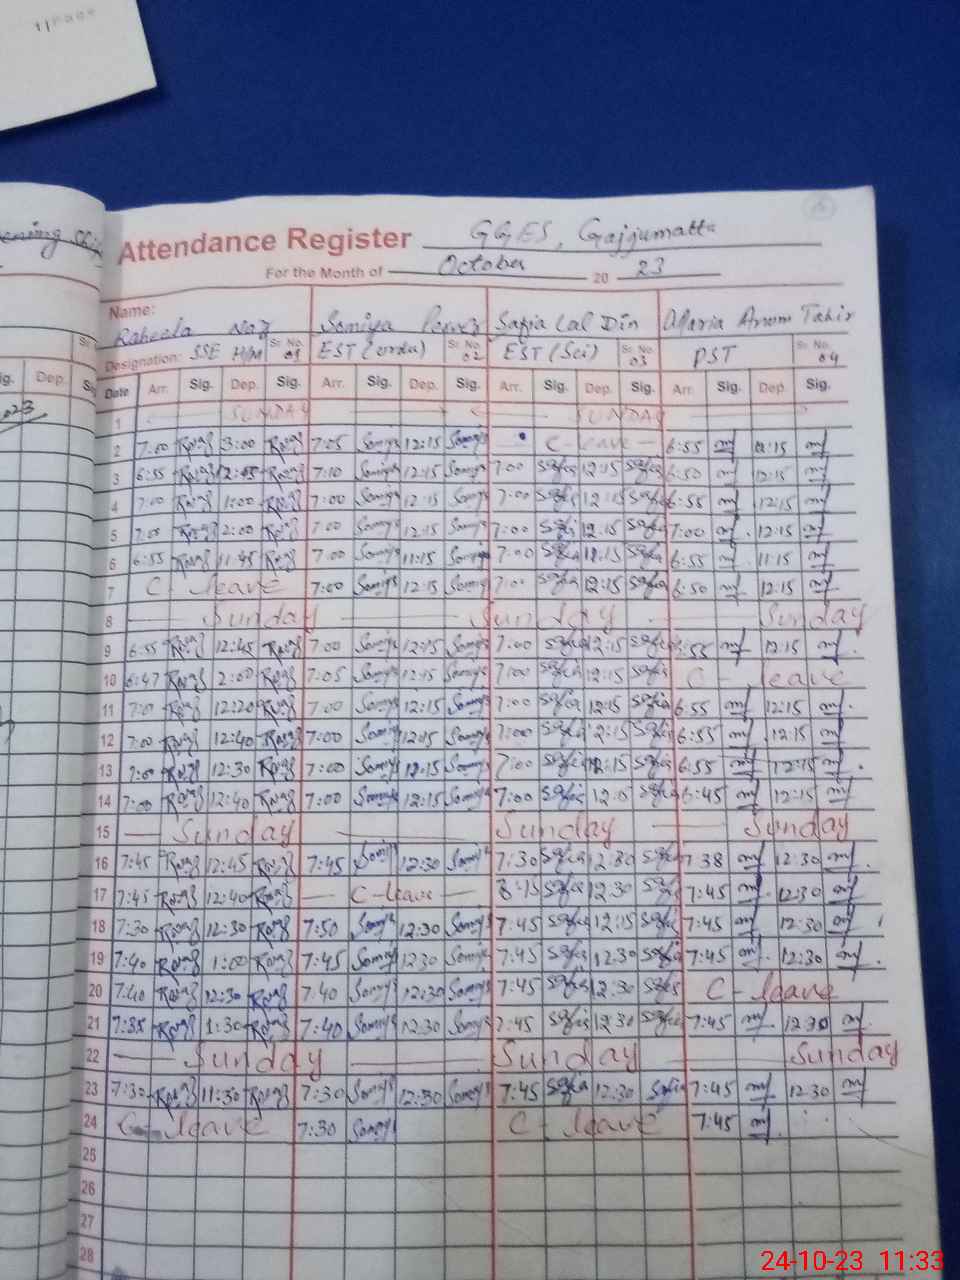 1|Page
Attendance Register GGES, Gajjumatta
For the Month of October 20 23
Name: Raheela Naz Somiya Safia Lal Din Maria Anum Tahir
Designation: SSE H/M Sr. No. 01 EST (urdu) Sr. No. 02 EST (Sci) Sr. No. 03 PST Sr. No. 04
Date Arr. Sig. Dep. Sig. Arr. Sig. Dep. Sig. Arr. Sig. Dep. Sig. Arr. Sig. Dep. Sig.
1 SUNDAY SUNDAY
2 7:00 3:00 7:05 Somiya 12:15 Somiya C-leave 6:55 12:15
3 6:55 7:10 Somiya 12:15 Somiya 7:00 Safia 12:15 Safia 6:50 12:15
4 7:00 1:00 7:00 Somiya 12:15 Somiya 7:00 Safia 12:15 Safia 6:55 12:15
5 7:00 2:00 7:00 Somiya 12:15 Somiya 7:00 Safia 12:15 Safia 7:00 12:15
6 6:55 11:45 7:00 Somiya 11:15 Somiya 7:00 Safia 11:15 Safia 6:55 11:15
7 C-leave 7:00 Somiya 12:15 Somiya 7:00 Safia 12:15 Safia 6:50 12:15
8 Sunday Sunday Sunday
9 6:55 12:45 7:00 Somiya 12:15 Somiya 7:00 Safia 12:15 Safia 12:15
10 6:47 2:00 7:05 Somiya 12:15 Somiya 7:00 Safia 12:15 Safia C-leave
11 12:20 7:00 Somiya 12:15 Somiya 7:00 Safia 12:15 Safia 6:55 12:15
12 7:00 12:40 7:00 Somiya 12:15 Somiya 7:00 Safia 12:15 Safia 6:55 12:15
13 7:00 12:30 7:00 Somiya 12:15 Somiya 7:00 Safia 12:15 Safia 6:55 12:15
14 7:00 12:40 7:00 Somiya 12:15 Somiya 7:00 Safia 12:15 Safia 6:45 12:15
15 Sunday Sunday Sunday
16 7:45 12:45 7:45 Somiya 12:30 Somiya 7:30 Safia 12:30 Safia 7:38 12:30
17 7:45 12:40 C-leave 8:15 Safia 12:30 Safia 7:45 12:30
18 7:30 12:30 7:50 Somiya 12:30 Somiya 7:45 Safia 12:15 Safia 7:45 12:30
19 7:40 1:00 7:45 Somiya 12:30 Somiya 7:45 Safia 12:30 Safia 7:45 12:30
20 7:40 12:30 7:40 Somiya 12:30 Somiya 7:45 Safia 12:30 Safia C-leave
21 7:35 1:30 7:40 Somiya 12:30 Somiya 7:45 Safia 12:30 Safia 7:45 12:30
22 Sunday Sunday Sunday
23 7:30 11:30 7:30 Somiya 12:30 Somiya 7:45 Safia 12:30 Safia 7:45 12:30
24 C-leave 7:30 Somiya C-leave 7:45
25
26
27
28
24-10-23 11:33